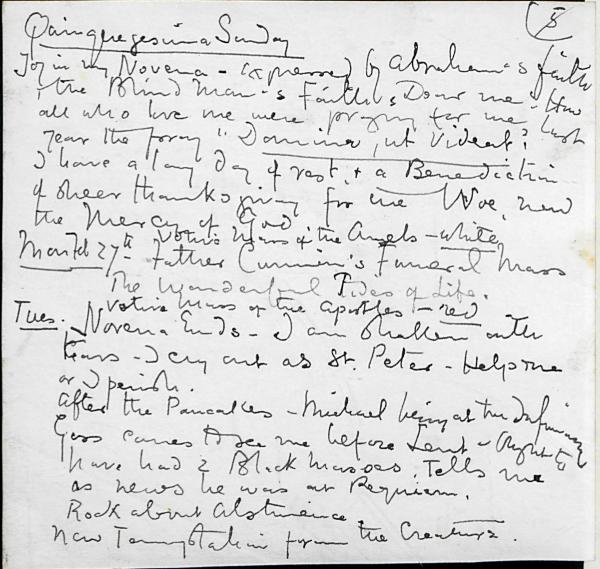 8
Quinquagesima Sunday
Joy in my Novena - expressed by Abraham's faith
, the Blind Man's Faith, Dour me - How
all who love me were praying for me last
year the foray "Domine, ut Videat".
I have a long day of rest, & a Benediction
of sheer thanksgiving for me Woe, need
the Mercy of God
Votive Mass of the Angels - white
Mon Feb 27th - Father Cummin's Funeral Mass
The Wonderful Tides of Life.
Votive Mass of the Apostles - red
Tues. Novena Ends - I am shaken with
tears - I cry out as St. Peter - Help me
or I perish.
After the Pancakes - Michael being at the
Goss comes to see me before Lent - Ought to
have had 2 Black Masses. Tells me
as news he was at Requiem.
Rock about Abstinence.
New Temptation from the Creature.